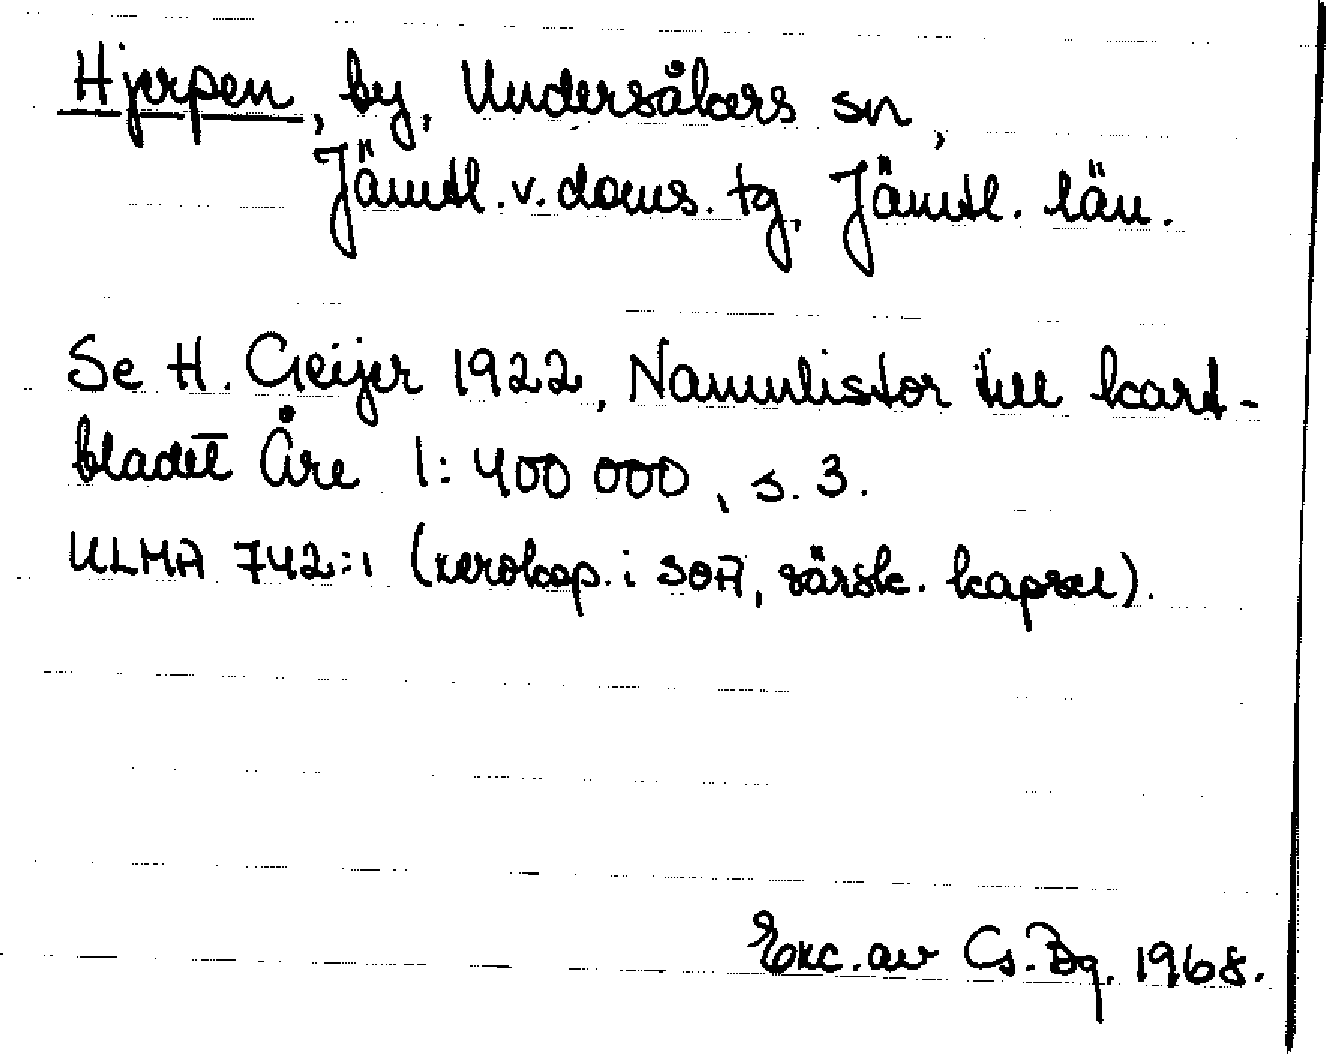 Hjerpen, by, Undersåkers sn,
Jämtl. v. doms. tg, Jämtl. län.
Se H. Geijer 1922, Namnlistor till kart-
bladet Åre 1:400 000, s. 3.
ULMA 742:1 (xerokop. i SOA, särsk. kapsel).
Exc. av Cs. Bg. 1968.